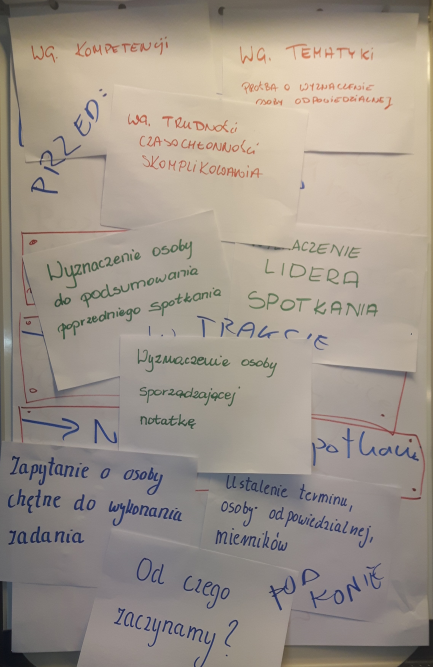 WG. KOMPETENCJI
WG. TEMATYKI
PROŚBA O WYZNACZENIE
OSOBY ODPOWIEDZIALNEJ
PRZED:
WG. TRUDNOŚCI
CZASOCHŁONNOŚCI
SKOMPLIKOWANIA
Wyznaczenie osoby
do podsumowania
poprzedniego spotkania
LIDERA
SPOTKANIA
W TRAKCIE
Wyznaczenie osoby
sporządzającej
notatkę
Zapytanie o osoby
chętne do wykonania
zadania
Ustalenie terminu,
osoby odpowiedzialnej,
mierników
POD
KONIE
Od czego
zaczynamy?